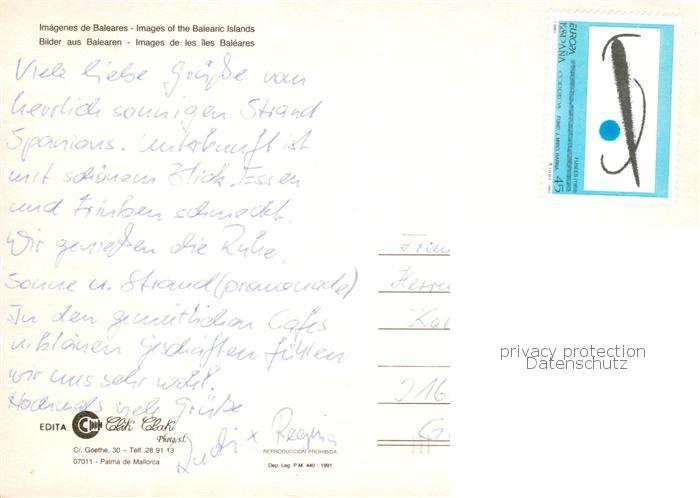 Imágenes de Baleares - Images of the Balearic Islands
Bilder aus Balearen - Images de les îles Baléares
Viele liebe Grüße vom
herrlich sonnigen Strand
Spaniens. Unterkunft ist
mit schönem Blick. Essen
und Trinken schmeckt.
Wir genießen die Ruhe,
Sonne u. Strand(promenade)
In den gemütlichen Cafes
u. kleinen Geschäften fühlen
wir uns sehr wohl.
Nochmals viele Grüße
Rudi x Regina
EDITA
Clik Clak
C/. Goethe, 30 - Telf. 28 91 13
07011 - Palma de Mallorca
REPRODUCCION PROHIBIDA
Dep. Leg. P.M. 440 - 1991
EUROPA
ESPAÑA
45
Herrn
privacy protection
Datenschutz